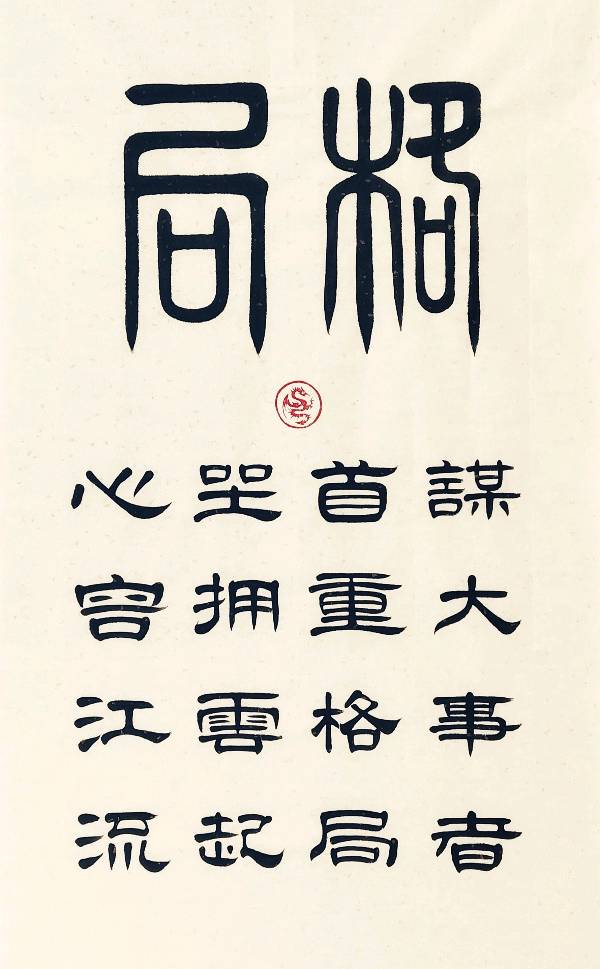 格局
謀大事者
首重格局
坐拥雲起
心容江流